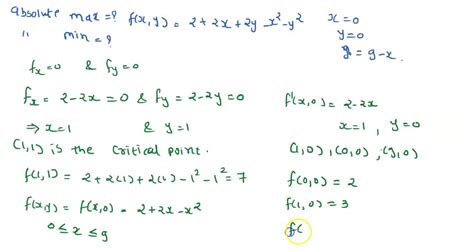 absolute max = ? f(x,y) = 2+2x+2y-x²-y² x=0
" min = ? y=0
y = 9-x.
fx=0 & fy=0
fx = 2-2x = 0 & fy = 2-2y=0
⇒ x=1 & y=1
(1,1) is the critical point.
f(1,1) = 2+2(1)+2(1)-1²-1² = 7
f(x,y) = f(x,0) = 2+2x-x²
0 ≤ x ≤ 9
f'(x,0) = 2-2x
x=1, y=0
(1,0), (0,0), (9,0)
f(0,0) = 2
f(1,0) = 3
f(